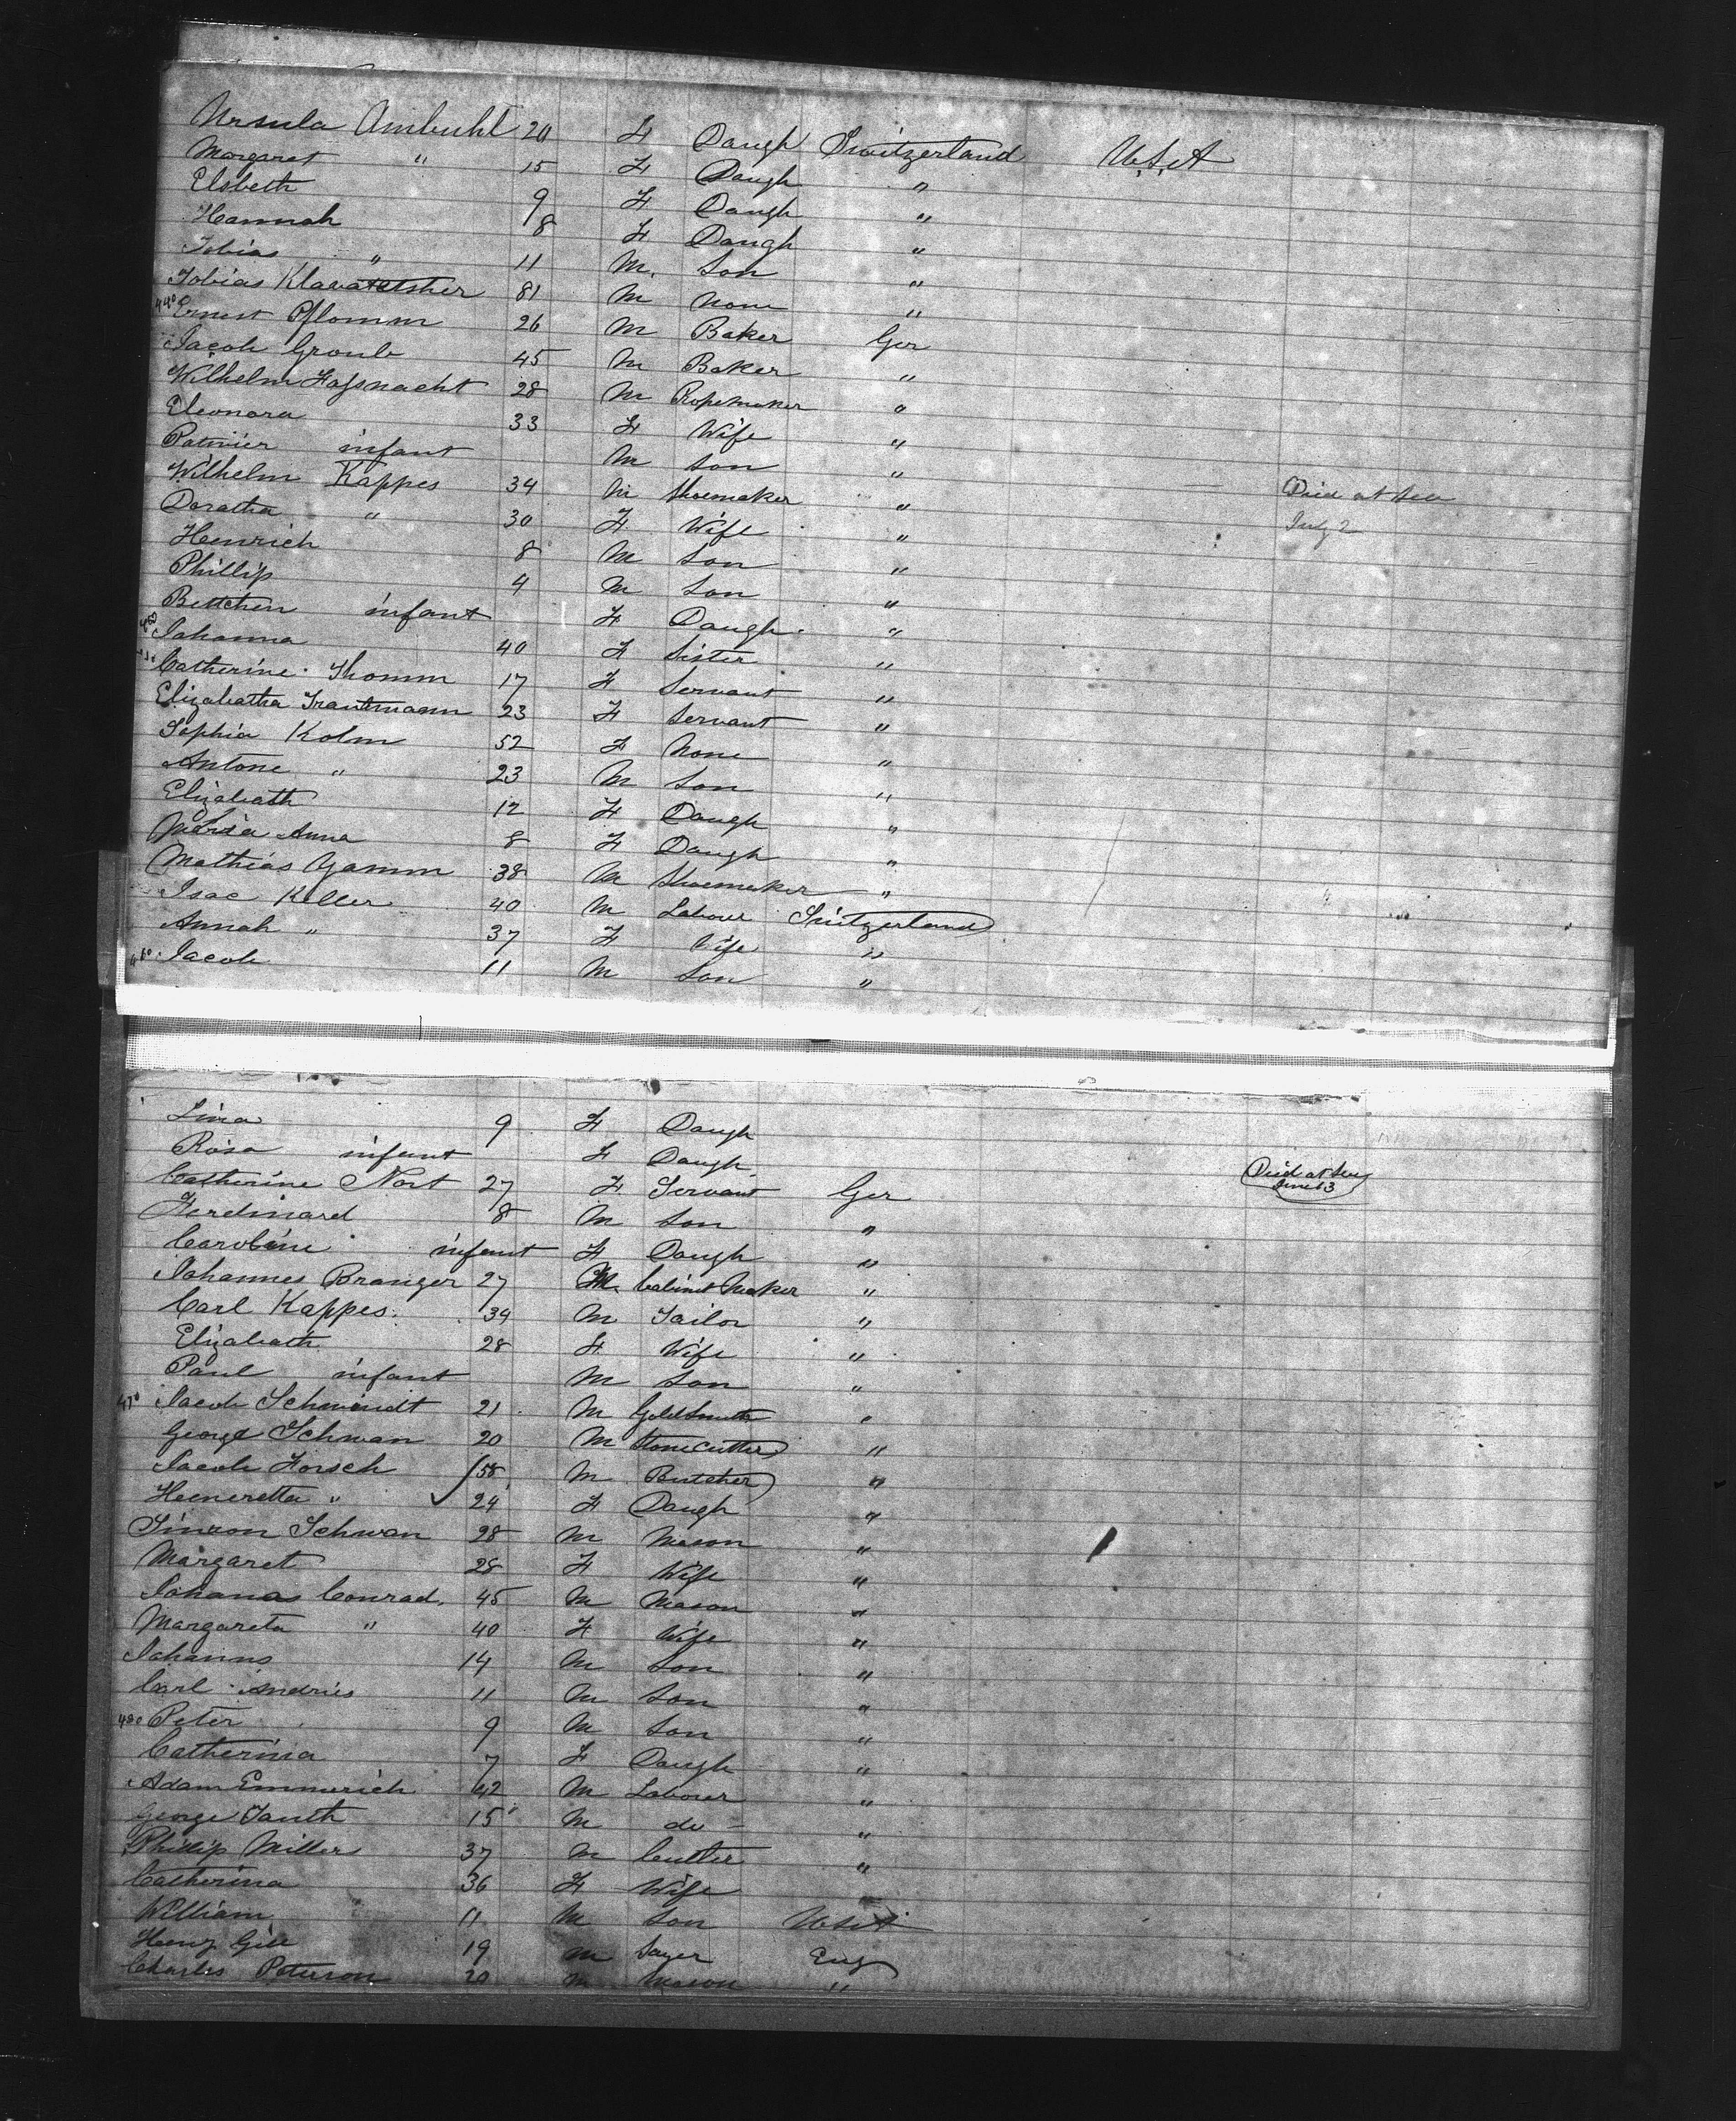 Ursula Ambuhl 20 F Daugh Switzerland U.S.A
Margaret " 15 F Daugh "
Elsbeth 9 F Daugh "
Hannah 8 F Daugh "
Tobias " 11 M. Son "
Tobias 81 M None "
440 Ernest Pflomm 26 M Baker Ger
Jacob Groub 45 M Baker "
Wilhelm Fassnacht 28 M Ropemaker "
Eleonora 33 F Wife "
infant M Son "
Wilhelm Kappes 34 M Shoemaker " Died at Sea
Doratha " 30 F. Wife " July 2
Heinrich 8 M Son "
Phillip 4 M Son "
Bettchen infant F Daugh. "
450 Johanna 40 F Sister "
Catherine Thomm 17 F Servant "
Elizabatha Trautmann 23 F Servant "
Sophia Kolm 52 F None "
Antone " 23 M Son "
Elizabath 12 F Daugh "
Maria Anna 8 F Daugh "
Mathias Gamm 38 M Shoemaker "
Isac Keller 40 M Labour Switzerland
Annah " 37 F Wife "
460 Jacob 11 M Son "
Lina 9 F Daugh
Rosa infant F Daugh Died at Sea
June 13
Catherine Nort 27 F. Servant Ger
Ferdinard 8 M Son "
Caroline infant F Daugh "
Johannes Branger 27 M. Cabinet Maker "
Carl Kappes 34 M Tailor "
Elizabath 28 F Wife "
Paul infant M Son "
470 Jacob Schmindt 21 M GoldSmith "
George Schwan 20 M Stonecutter "
Jacob Horsch 58 M Butcher "
Heneretta " 24 F Daugh "
Simon Schwan 28 M Mason "
Margaret 28 F Wife "
Johanas Conrad. 45 M Mason "
Margareta " 40 F Wife "
Johanns 14 M Son "
Carl Andries 11 M Son "
480 Peter 9 M Son "
Catherina 7 F Daugh "
Adam Emmerich 42 M Labour "
George Tauth 15 M do "
Phillip Miller 37 M Cutler "
Catherina 36 F Wife
William 11 M Son U.S.A
Henry Gill 19 M Eng
Charles Peterson 20 M Mason "